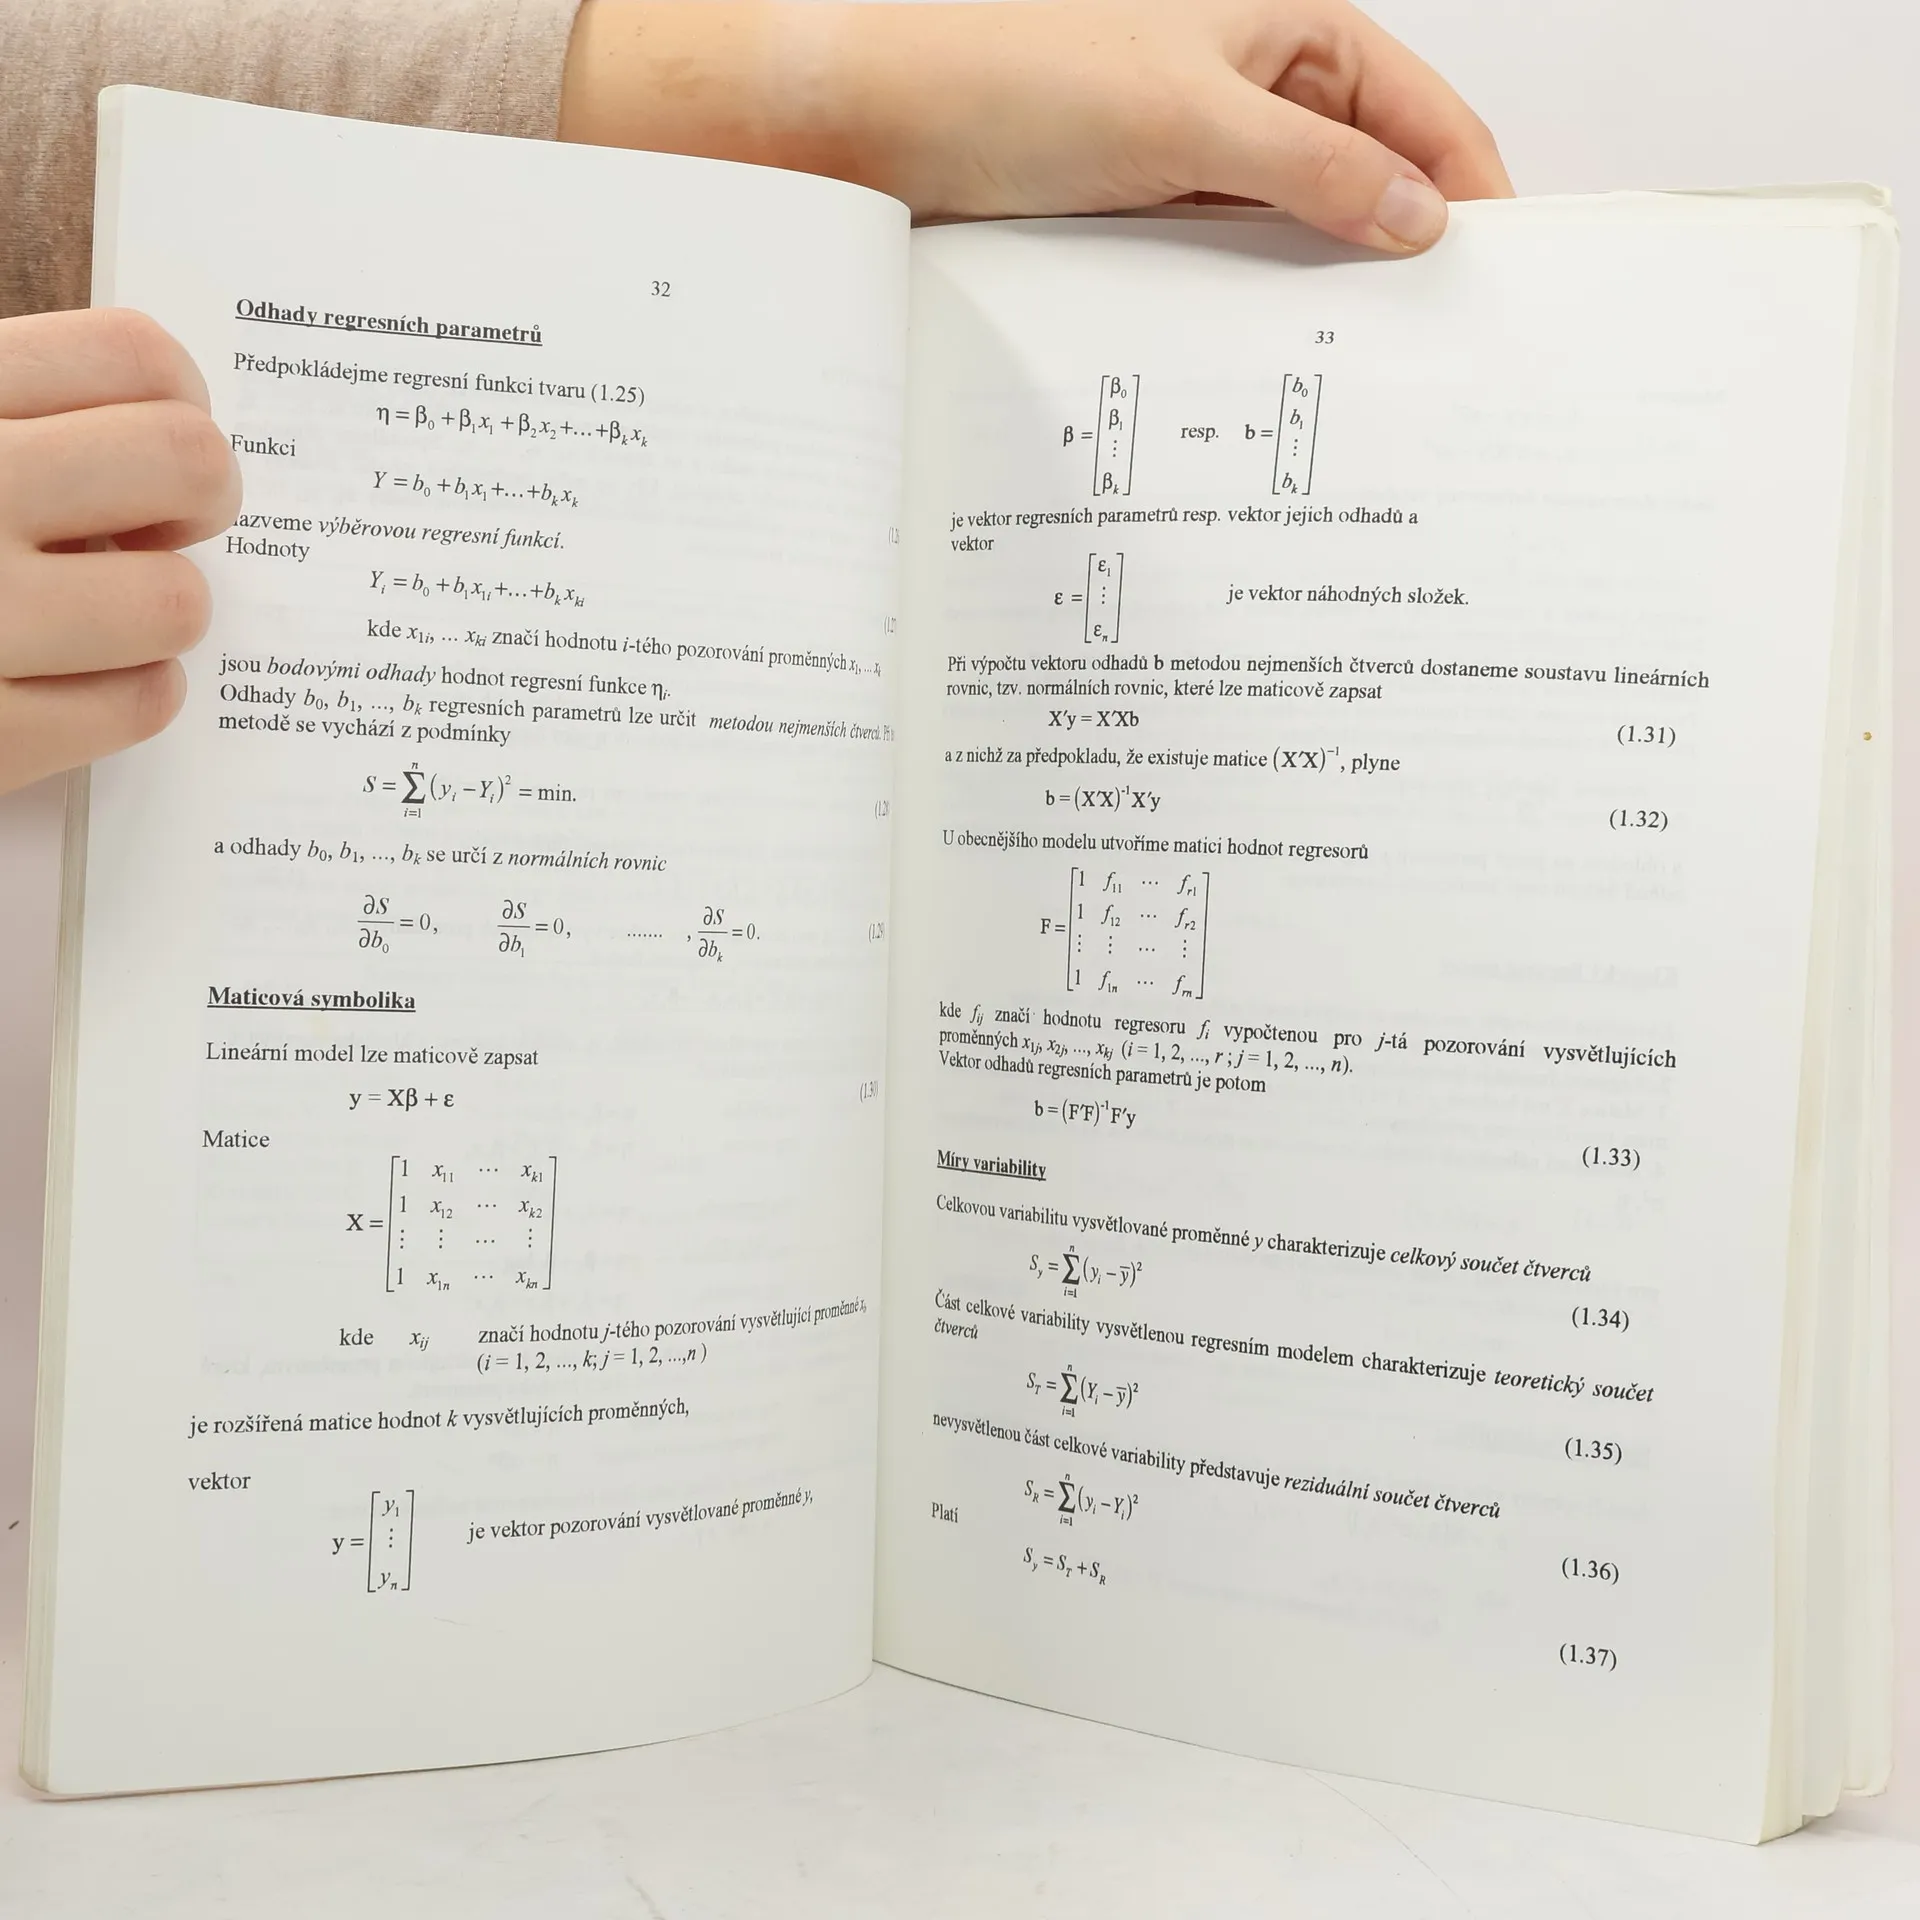 32
Odhady regresních parametrů
Předpokládejme regresní funkci tvaru (1.25)
η = β₀ + β₁x₁ + β₂x₂ +...+ βₖxₖ
Funkci
Y = b₀ + b₁x₁ +...+ bₖxₖ
výběrovou regresní funkcí.
Hodnoty
Yᵢ = b₀ + b₁x₁ᵢ +...+ bₖxₖᵢ
kde x₁ᵢ, ... xₖᵢ značí hodnotu i-tého pozorování proměnných x₁, ... xₖ
jsou bodovými odhady hodnot regresní funkce ηᵢ.
Odhady b₀, b₁, ..., bₖ regresních parametrů lze určit metodou nejmenších čtverců.
metodě se vychází z podmínky
S = ∑ᵢ₌₁ⁿ (yᵢ − Yᵢ)² = min.
a odhady b₀, b₁, ..., bₖ se určí z normálních rovnic
∂S/∂b₀ = 0, ∂S/∂b₁ = 0, ......., ∂S/∂bₖ = 0. (1.29)
Maticová symbolika
Lineární model lze maticově zapsat
y = Xβ + ε (1.30)
Matice
1 x₁₁ ··· xₖ₁
1 x₁₂ ··· xₖ₂
X =
⋮ ⋮ ··· ⋮
1 x₁ₙ ··· xₖₙ
kde xᵢⱼ značí hodnotu j-tého pozorování vysvětlující proměnné xᵢ,
(i = 1, 2, ..., k; j = 1, 2, ...,n )
je rozšířená matice hodnot k vysvětlujících proměnných,
vektor
y₁
y = ⋮ je vektor pozorování vysvětlované proměnné y,
yₙ
33
β₀ b₀
β₁ b₁
β = resp. b =
⋮ ⋮
βₖ bₖ
je vektor regresních parametrů resp. vektor jejich odhadů a
vektor
ε₁
ε = ⋮ je vektor náhodných složek.
εₙ
Při výpočtu vektoru odhadů b metodou nejmenších čtverců dostaneme soustavu lineárních
rovnic, tzv. normálních rovnic, které lze maticově zapsat
X′y = X′Xb (1.31)
a z nichž za předpokladu, že existuje matice (X′X)⁻¹, plyne
b = (X′X)⁻¹X′y (1.32)
U obecnějšího modelu utvoříme matici hodnot regresorů
1 f₁₁ ··· fᵣ₁
1 f₁₂ ··· fᵣ₂
F =
⋮ ⋮ ··· ⋮
1 f₁ₙ ··· fᵣₙ
kde fᵢⱼ značí hodnotu regresoru fᵢ vypočtenou pro j-tá pozorování vysvětlujících
proměnných x₁ⱼ, x₂ⱼ, ..., xₖⱼ (i = 1, 2, ..., r ; j = 1, 2, ..., n).
Vektor odhadů regresních parametrů je potom
b = (F′F)⁻¹F′y (1.33)
Míry variability
Celkovou variabilitu vysvětlované proměnné y charakterizuje celkový součet čtverců
Sᵧ = ∑ᵢ₌₁ⁿ (yᵢ − ȳ)² (1.34)
Část celkové variability vysvětlenou regresním modelem charakterizuje teoretický součet
čtverců
S_T = ∑ᵢ₌₁ⁿ (Yᵢ − ȳ)² (1.35)
nevysvětlenou část celkové variability představuje reziduální součet čtverců
S_R = ∑ᵢ₌₁ⁿ (yᵢ − Yᵢ)² (1.36)
Platí
Sᵧ = S_T + S_R (1.37)